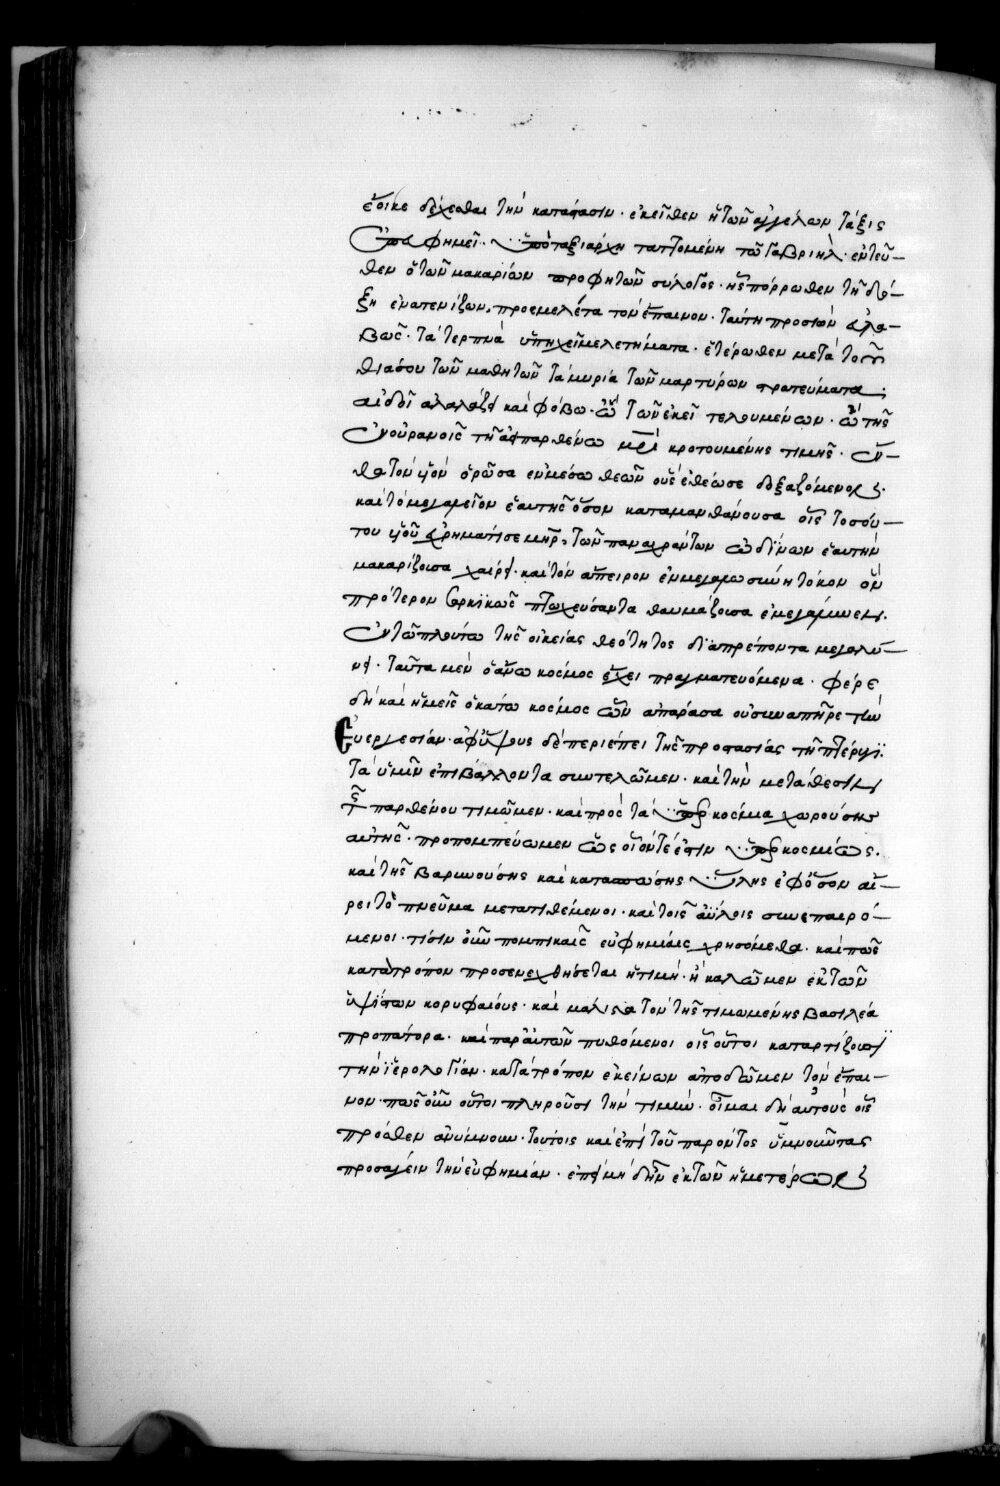 ἔοικε δέχεσθαι τὴν κατάστασιν· ἐκεῖθεν ἡ τῶν ἀγγέλων τάξις
φημεῖ· ταξιάρχη ταττομένη τῶ γαβριὴλ· ἐντεῦ-
θεν ὁ τῶν μακαρίων προφητῶν σύλογος· ἧς πόρρωθεν τῆ δό-
ξη ἐνατενίζων, προεμελέτα τὸν ἔπαινον· ταύτη προσιὼν
τὰ τερπνὰ ὑπηχεῖ μελετήματα· ἑτέρωθεν μετὰ τοῦ
θιάσου τῶν μαθητῶν τὰ μυρία τῶν μαρτύρων στρατεύματα·
αἰδοῖ καὶ φόβω· ὢ τῶν ἐκεῖ τελουμένων· ὢ τῆς
ἐν οὐρανοῖς τῆ ἀειπαρθένω κροτουμένης τιμῆς· ἔν-
θα τὸν ὁρῶσα ἐν μέσω θεῶν οὓς ἐθέωσε δοξαζόμενον·
καὶ τὸ μεγαλεῖον ἑαυτῆς ὅσον καταμανθάνουσα οἷς τοσού-
του χρημάτισε μῆρ, τῶν παναχράντων ὠδίνων ἑαυτὴν
μακαρίζουσα χαίρει· καὶ τὸν ἄπειρον ἐν μεγαλωσύνη τόκον ὃν
πρότερον σαρκικῶς πτωχεύσαντα θαυμάζουσα ἐμεγάλυνεν·
ἐν τῶ πλούτω τῆς οἰκείας θεότητος διαπρέποντα μεγαλύ-
νει· ταῦτα μὲν ὁ ἄνω κόσμος ἔχει πραγματευόμενα· φέρε
δὴ καὶ ἡμεῖς ὁ κάτω κόσμος ὧν ἀπάρασα οὐ συναπῆρε τὴν
εὐεργεσίαν· ἀφ' ὕψους δὲ περιέπει τῆς προστασίας τῆ πτέρυγι·
τὰ ἡμῖν ἐπιβάλλοντα συντελῶμεν· καὶ τὴν μετάθεσιν
τῆς παρθένου τιμῶμεν· καὶ πρὸς τὰ ὑπερκόσμια χωρούσης
αὐτῆς· προπομπεύωμεν ὡς οἷόν τέ ἐστιν ὑπερκοσμίως·
καὶ τῆς βαρυνούσης καὶ κατασπώσης ὕλης ἐφ' ὅσον αἴ-
ρει τὸ πνεῦμα μετατιθέμενοι· καὶ τοῖς ἀΰλοις συνεπαιρό-
μενοι· τίσιν οὖν πομπικαῖς εὐφημίαις χρησόμεθα· καὶ πῶς
κατὰ τρόπον προσενεχθήσεται ἡ τιμή· ἢ καλῶμεν ἐκ τῶν
ὑψίστων κορυφαίους· καὶ μάλιστα τὸν τῆς τιμωμένης βασιλέα
προπάτορα· καὶ παρ' αὐτῶν πυθόμενοι οἷς οὗτοι καταρτίζουσι
τὴν ἱερολογίαν· κατὰ τρόπον ἐκείνων ἀποδῶμεν τὸν ἔπαι-
νον· πῶς οὖν οὗτοι πληροῦσι τὴν τιμήν· οἶμαι δὴ αὐτοὺς οἷς
πρόσθεν ἀνύμνουν· τούτοις καὶ ἐπὶ τοῦ παρόντος ὑμνοῦντας
προσάγειν τὴν εὐφημίαν· ἐπεὶ μὴ δὴν ἐκ τῶν ἡμετέρων